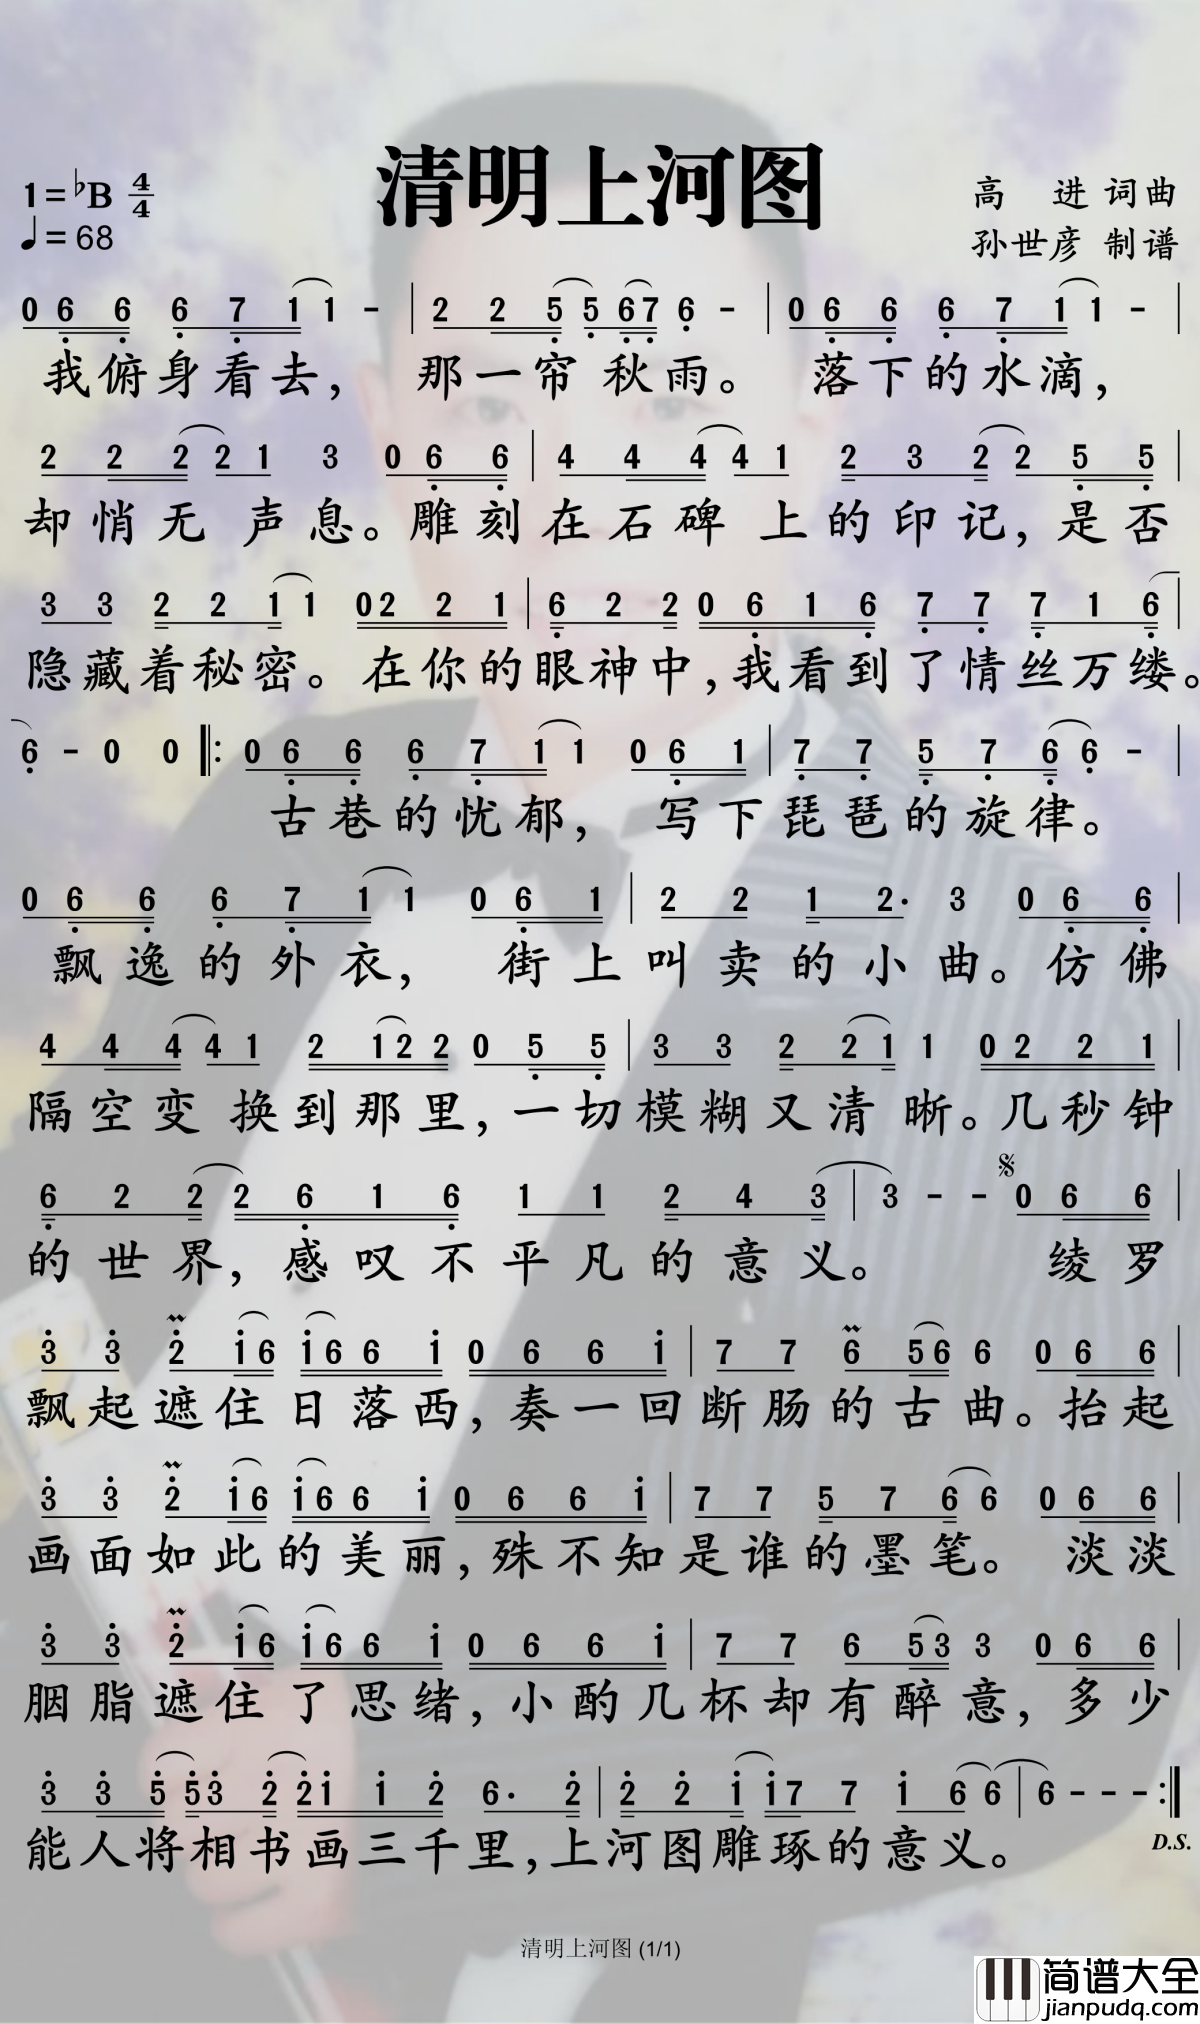 清明上河图
1=♭B 4/4
♩=68
高 进 词曲
孙世彦 制谱
0 6 6 6 7 1 1 - | 2 2 5 5 6 7 6 - | 0 6 6 6 7 1 1 - |
我俯身看去， 那一帘 秋雨。 落下的水滴，
2 2 2 2 1 3 0 6 6 | 4 4 4 4 1 2 3 2 2 5 5 |
却悄无 声息。雕刻在石碑 上的印记，是否
3 3 2 2 1 1 0 2 2 1 | 6 2 2 0 6 1 6 7 7 7 1 6 |
隐藏着秘密。在你的眼神中，我看到了情丝万缕。
6 - 0 0 ‖: 0 6 6 6 7 1 1 0 6 1 | 7 7 5 7 6 6 - |
古巷的忧郁， 写下琵琶的旋律。
0 6 6 6 7 1 1 0 6 1 | 2 2 1 2· 3 0 6 6 |
飘逸的外衣， 街上叫卖的小曲。仿佛
4 4 4 4 1 2 1 2 2 0 5 5 | 3 3 2 2 1 1 0 2 2 1 |
隔空变 换到那里，一切模糊又清 晰。几秒钟
6 2 2 2 6 1 6 1 1 2 4 3 | 3 - - 0 6 6 |
的世界，感叹不平凡的意义。 绫罗
3 3 2 1 6 1 6 6 1 0 6 6 1 | 7 7 6 5 6 6 0 6 6 |
飘起遮住日落西，奏一回断肠的古曲。抬起
3 3 2 1 6 1 6 6 1 0 6 6 1 | 7 7 5 7 6 6 0 6 6 |
画面如此的美丽，殊不知是谁的墨笔。 淡淡
3 3 2 1 6 1 6 6 1 0 6 6 1 | 7 7 6 5 3 3 0 6 6 |
胭脂遮住了思绪，小酌几杯却有醉意，多少
3 3 5 5 3 2 2 1 1 2 6· 2 | 2 2 1 1 7 7 1 6 6 | 6 - - - :‖
D.S.
能人将相书画三千里，上河图雕琢的意义。
清明上河图 (1/1)
简谱大全
jianpudq.com